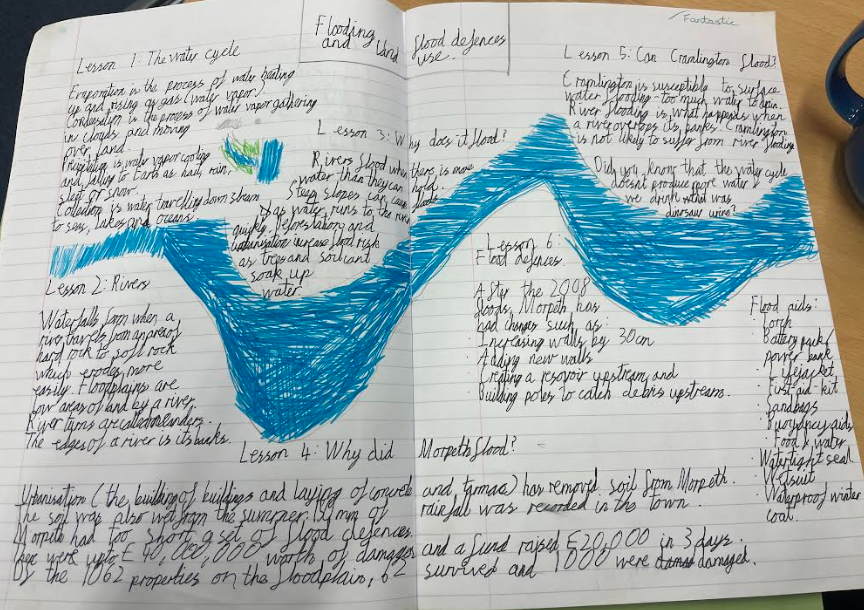 Fantastic
Flooding and land
flood defences use.
Lesson 1: The water cycle
Evaporation is the process of water heating
up and rising as gas (water vapor)
Condensation is the process of water vapor gathering
in clouds and moving
over land.
Precipitation is water vapor cooling
and falling to Earth as hail, rain,
sleet or snow.
Collection is water travelling down stream
to seas, lakes and oceans.
Lesson 2: Rivers
Waterfalls form when a
river travels from an area of
hard rock to soft rock
which erodes more
easily. Floodplains are
low areas of land by a river.
River turns are called meanders.
The edges of a river is its banks.
Lesson 3: Why does it flood?
Rivers flood when there is more
water than they can hold.
Steep slopes can cause floods
as water runs to the river
quickly. Deforestation and
urbanisation increase flood risk
as trees and soil cant
soak up
water.
Lesson 4: Why did Morpeth flood?
Urbanisation (the building of buildings and laying of concrete and tarmac) has removed soil from Morpeth.
The soil was also wet from the summer. mm of rainfall was recorded in the town.
Morpeth had too short a set of flood defences.
There were upto £40,000,000 worth of damages and a fund raised £20,000 in 3 days.
Of the 1062 properties on the floodplain, 62 survived and 1000 were damaged.
Lesson 5: Can Cramlington flood?
Cramlington is susceptible to surface
water flooding - too much water to drain.
River flooding is what happends when
a river overtops its banks. Cramlington
is not likely to suffer from river flooding
Did you know that the water cycle
doesnt produce more water
we drink what was
dinosaur urine?
Lesson 6:
Flood defences.
After the 2008
floods, Morpeth has
had changes such as:
· Increasing walls by 30cm
· Adding new walls
· Creating a resovoir upstream, and
· Building poles to catch debris upstream.
Flood aids:
· Torch
· Battery pack/
power bank
· Lifejacket
· First-aid-kit
· Sandbags
· Buoyancy aids
· Food & water
· Watertight seal
· Wetsuit
· Waterproof winter
coat.